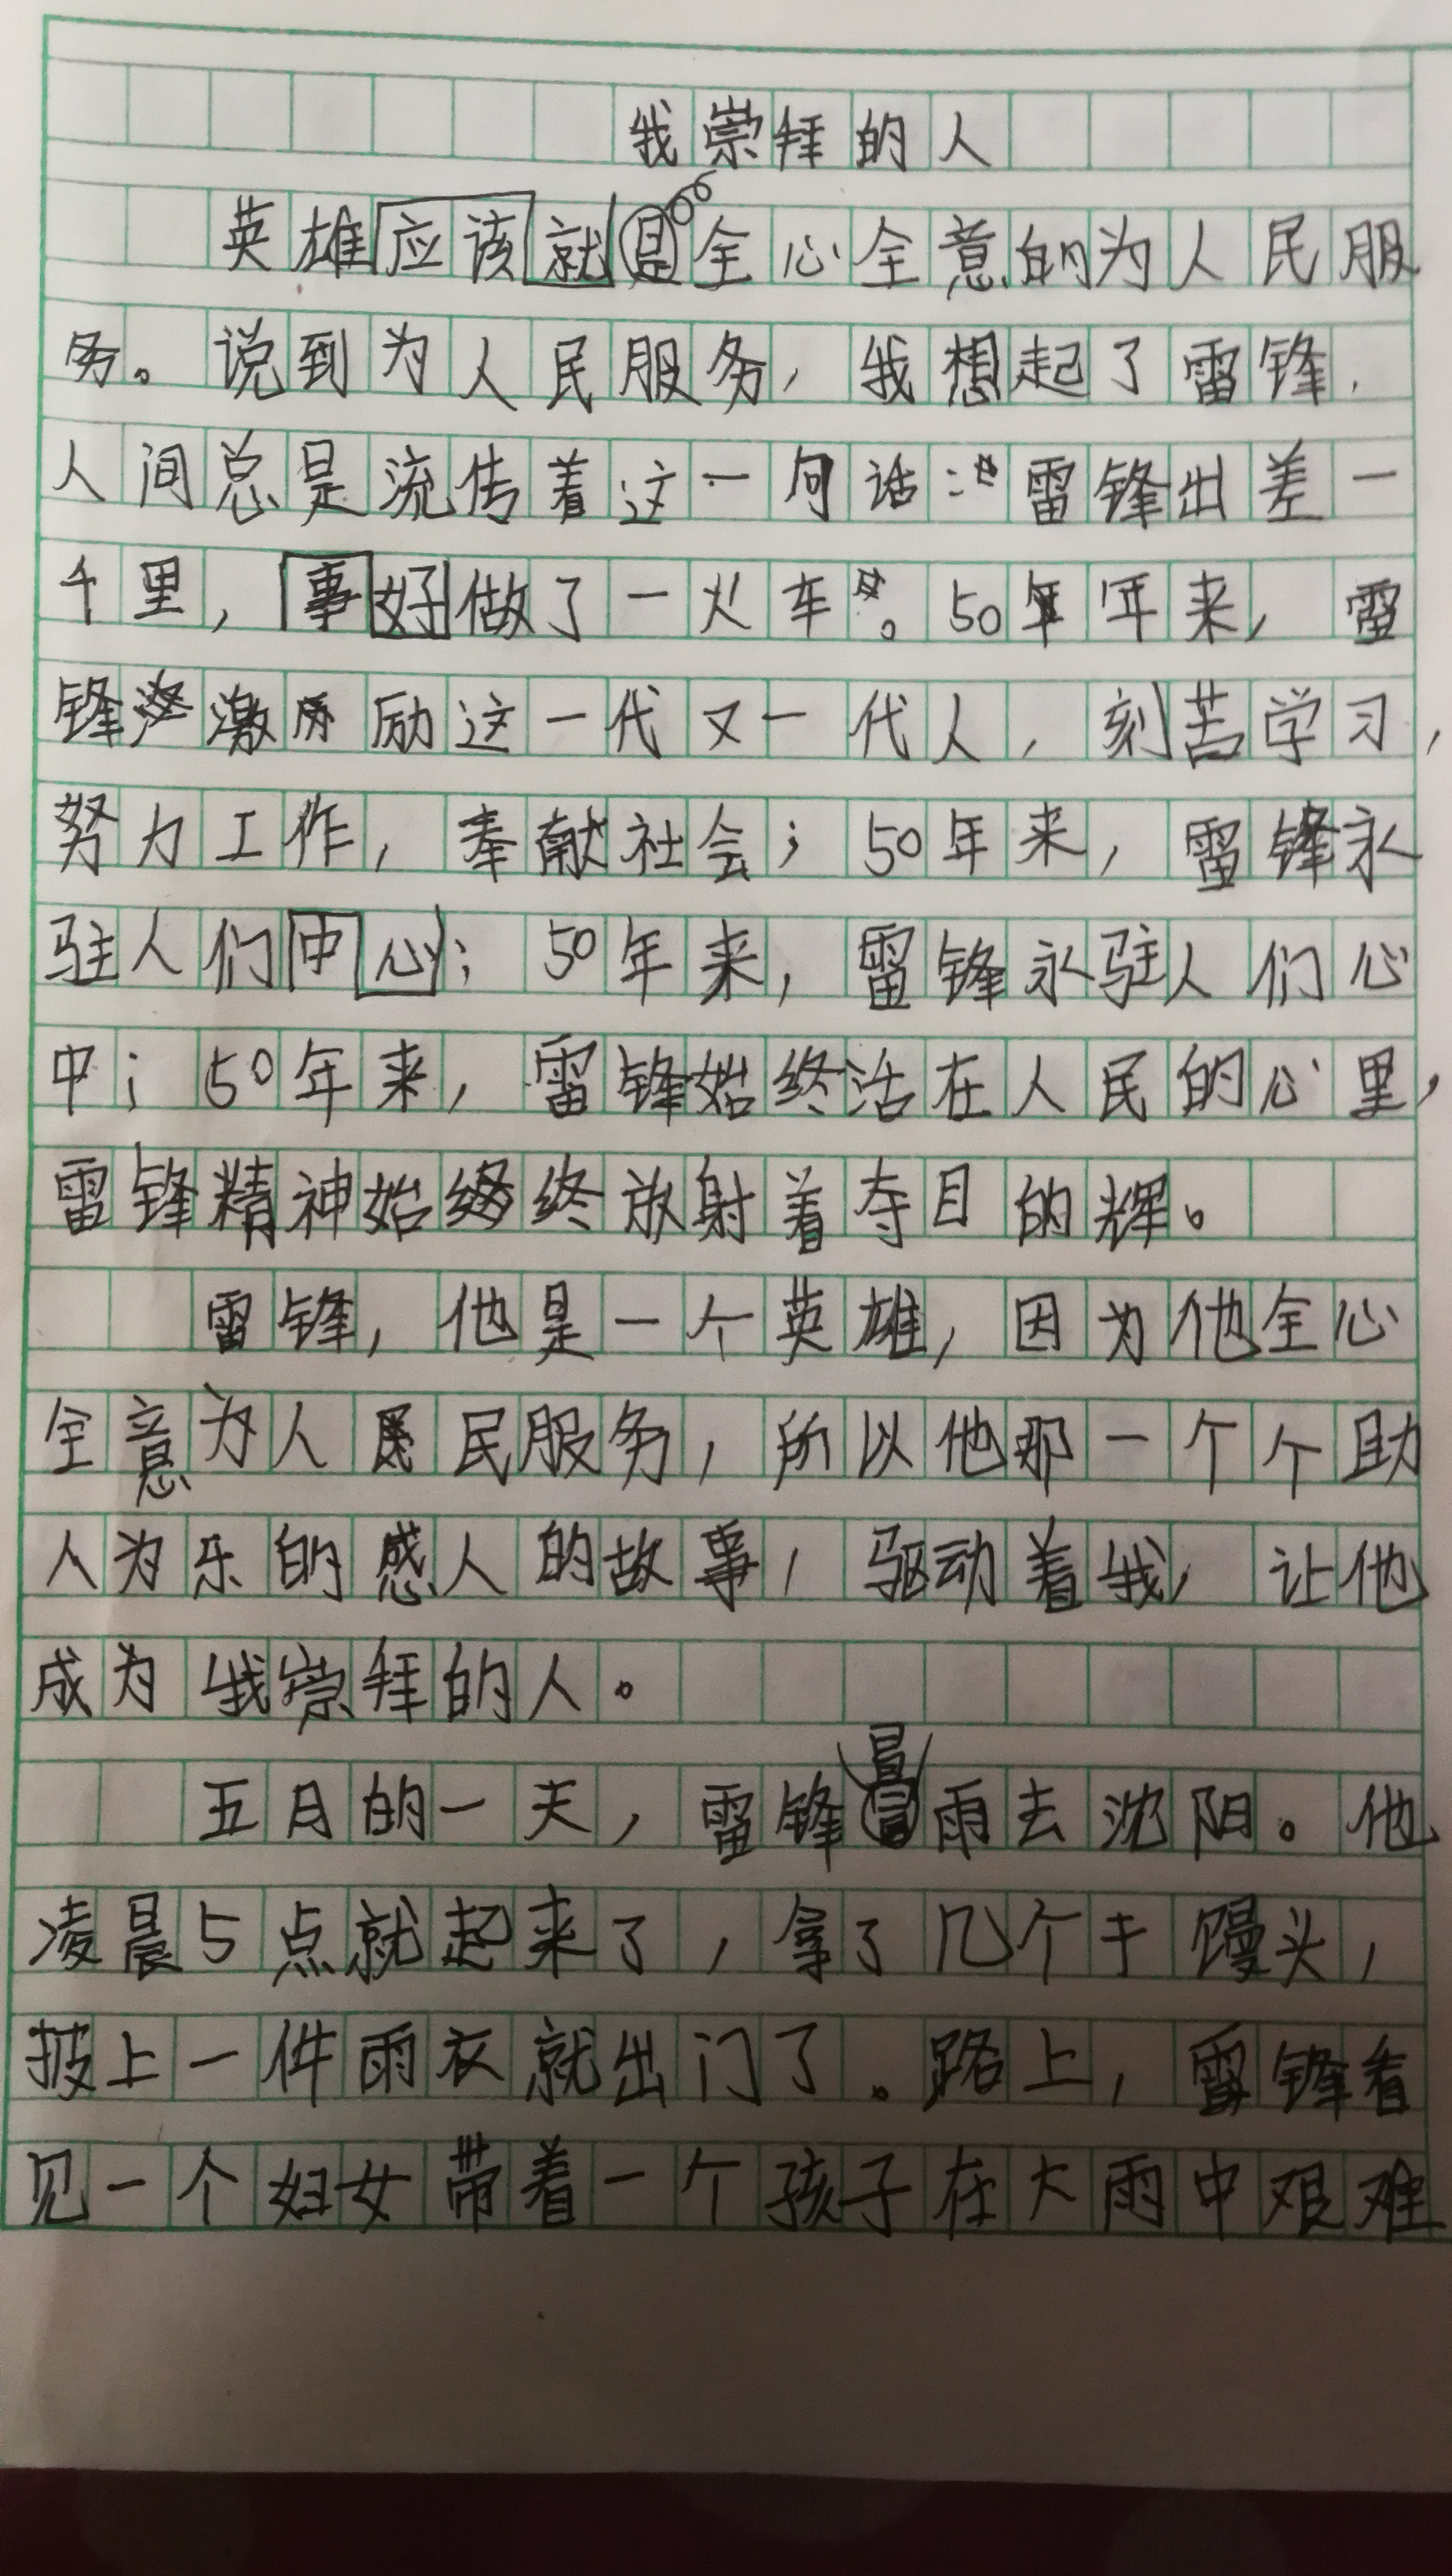 我崇拜的人
英雄应该就是全心全意的为人民服
务。说到为人民服务,我想起了雷锋,
人间总是流传着这一句话:雷锋出差一
千里,事好做了一火车。50年来,雷
锋激励这一代又一代人,刻苦学习,
努力工作,奉献社会;50年来,雷锋永
驻人们中心;50年来,雷锋永驻人们心
中;50年来,雷锋始终活在人民的心里,
雷锋精神始终放射着夺目的辉。
雷锋,他是一个英雄,因为他全心
全意为人民服务,所以他那一个个助
人为乐的感人的故事,驱动着我,让他
成为我崇拜的人。
五月的一天,雷锋冒雨去沈阳。他
凌晨5点就起来了,拿了几个干馒头,
披上一件雨衣就出门了。路上,雷锋看
见一个妇女带着一个孩子在大雨中艰难